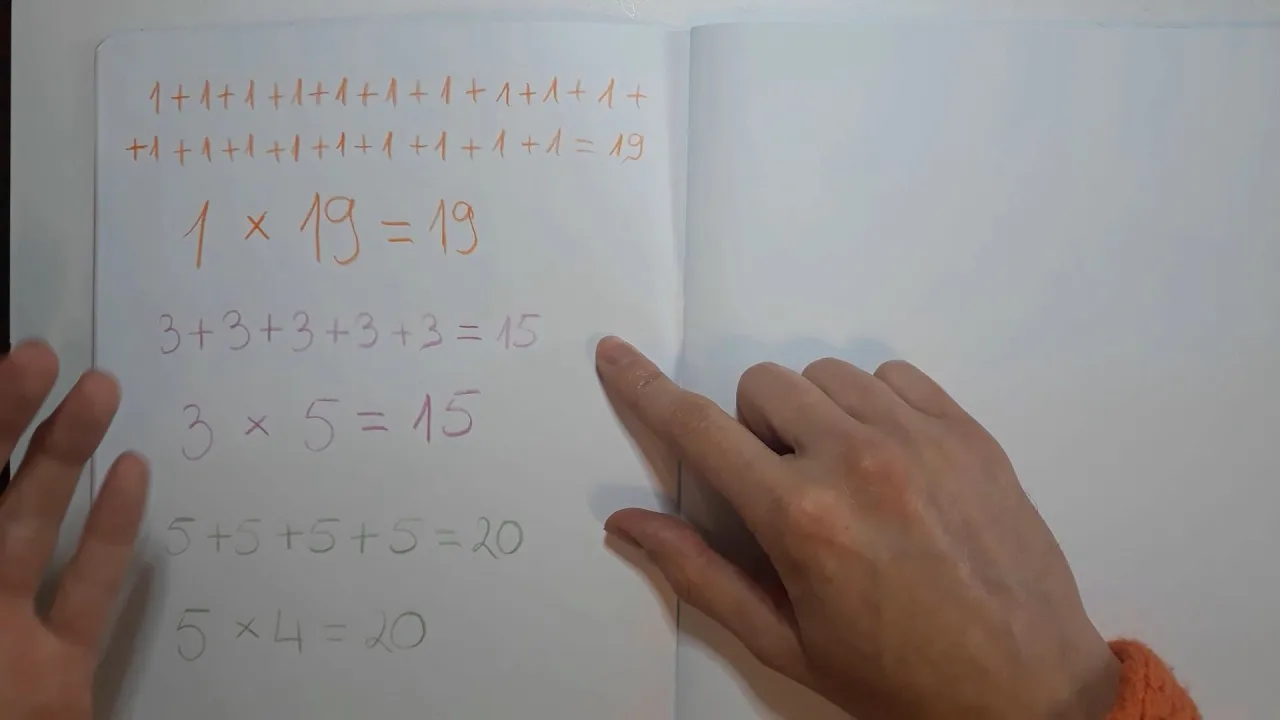 1+1+1+1+1+1+1+1+1+1+
+1+1+1+1+1+1+1+1+1=19
1 × 19 = 19
3+3+3+3+3=15
3 × 5 = 15
5+5+5+5=20
5 × 4 = 20